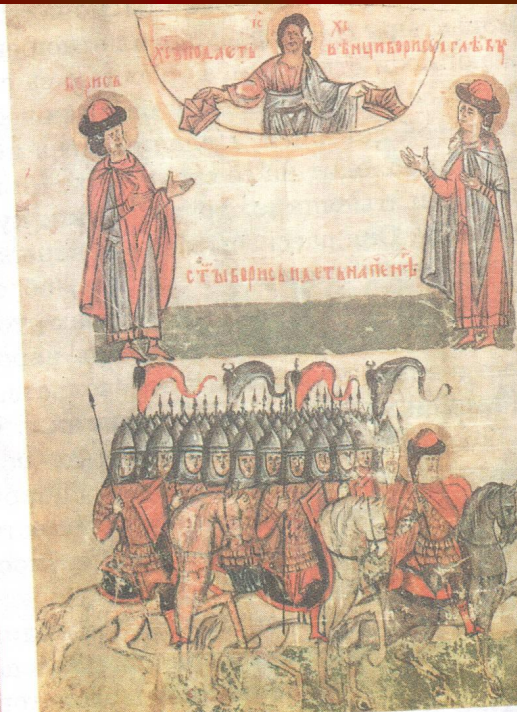 ІС ХС
ХЪ ПОДАЕТЬ ВѢНЦИ БОРИСУ И ГЛѢБУ
БОРИСЪ
СТЫ БОРИСЬ ИДЕТЬ НА ПЕЧНѢ